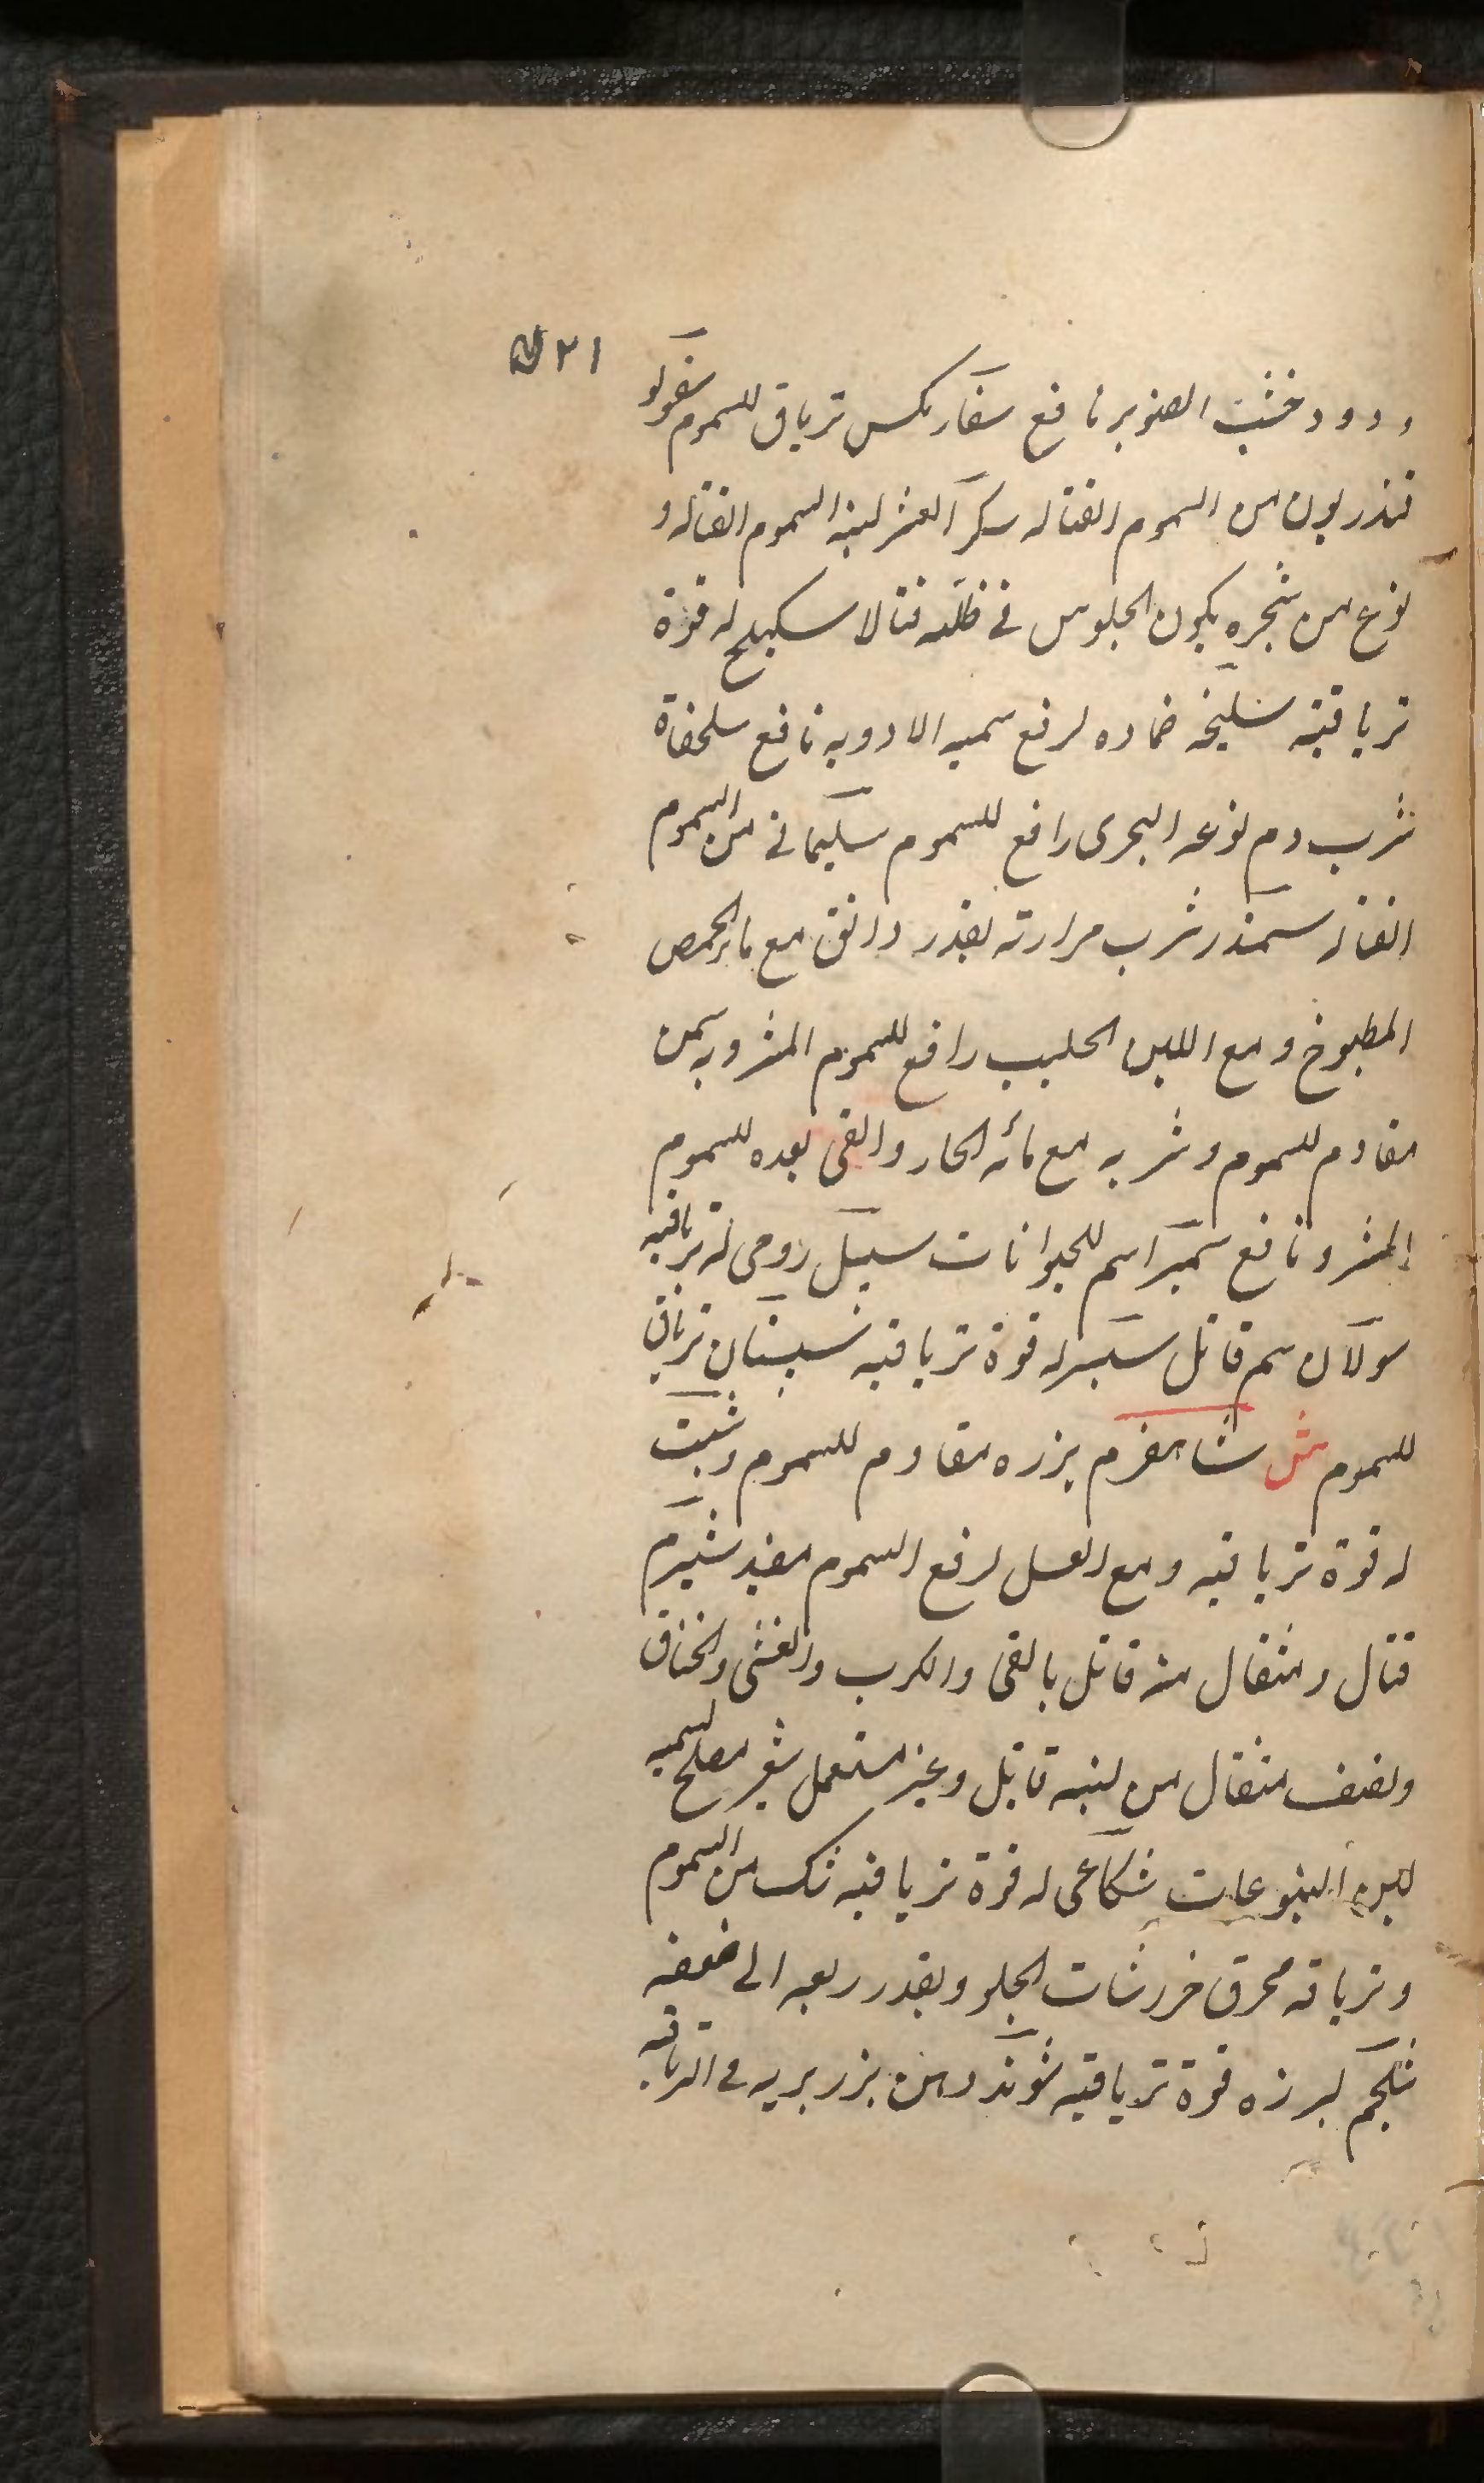 ٢١
ودود خشب الصنوبر نافع سفاركس ترياق للسموم سقولو
قندريون من السموم القتاله سكر العشر لبنه السموم القتاله و
نوع من شجره يكون الجلوس فى ظله قتالا سكبينج له قوة
ترياقية سليخه ضماده لرفع سميه الادويه نافع سلحفاة
شرب دم نوعه البحرى رافع للسموم سليمانى من السموم
القتاله سمندر شرب مرارته بقدر دانق مع ماء الحمص
المطبوخ ومع اللبن الحليب رافع للسموم المشروبه سمن
مقاوم للسموم وشربه مع مائه الحار والقى بعده للسموم
المشرو نافع سميراسم للحيوانات سنبل رومى له ترياقيه
سولان سم قاتل سيسبر له قوة ترياقيه سيسبان ترياق
للسموم ش شاهسفرم بزره مقاوم للسموم وشبت
له قوة ترياقيه ومع العسل لرفع السموم مفيد شبرم
قتال ومثقال منه قاتل بالقى والكرب والغشى والخناق
ونصف مثقال من لبنه قاتل وغير مستعمل شعير مصلح لسميه
لبن اليتوعات شكاعى له قوة ترياقيه شك من السموم
وترياقه محرق خردشات الجلو وبقدر ربعه الى ضعفه
شلجم لبزره قوة ترياقيه شوندر من بزر بريه فى الترياقيه